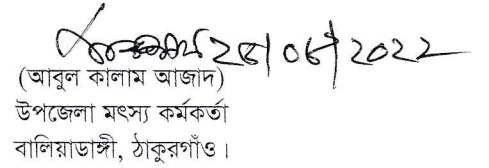 28/06/2022
(আবুল কালাম আজাদ)
উপজেলা মৎস্য কর্মকর্তা
বালিয়াডাঙ্গী, ঠাকুরগাঁও।